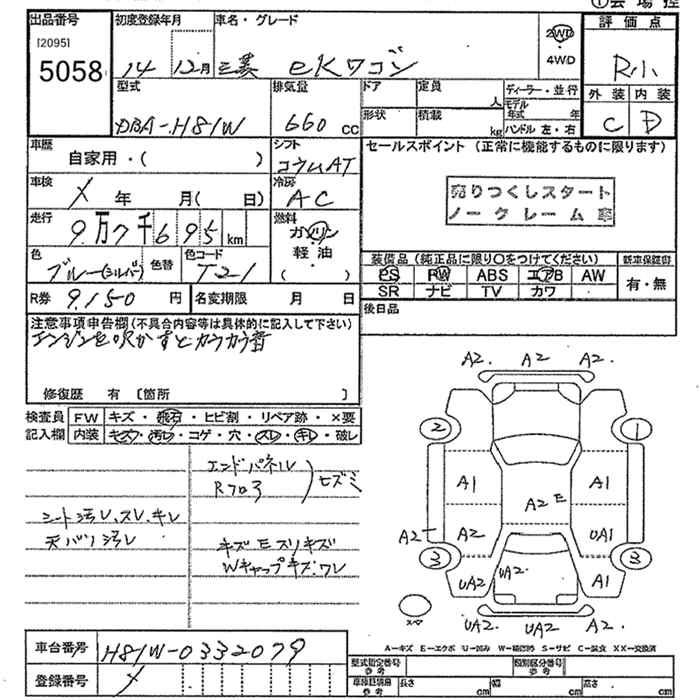 ①会場控
出品番号
[2095]
5058
初度登録年月
14 12月
車名・グレード
三菱 eKワゴン
2WD
・
4WD
評価点
R小
外装 内装
C D
型式
DBA-H81W
排気量
660 cc
ドア
定員
人
形状
積載
kg
ディーラー・並行
モデル年式 年
ハンドル 左・右
車歴
自家用・( )
シフト
コラムAT
セールスポイント (正常に機能するものに限ります)
売りつくしスタート
ノークレーム車
車検
メ 年 月( 日)
冷房
AC
走行
9万7千695km
燃料
ガソリン
軽油
( )
色
ブルー(シルバー)
色替
色コード
T21
装備品 (純正品に限り○をつけてください)
PS PW ABS エアB AW
SR ナビ TV カワ
新車保証書
有・無
R券 9,150 円
名変期限 月 日
後日品
注意事項申告欄(不具合内容等は具体的に記入して下さい)
エンジンを吹かすとカラカラ音
修復歴 有 〔箇所 〕
検査員
記入欄
FW キズ・飛石・ヒビ割・リペア跡・×要
内装 キズ・汚レ・コゲ・穴・スレ・キレ・破レ
エンドパネル
Rフロア
ヒズミ
シート汚レ、スレ、キレ
天バリ汚レ
キズ E スリキズ
Wキャップキズ、ワレ
A2. A2 A2.
2 1
A1 A1
A2 E
A2 A2 UA1
3 3
UA2 UA2 A1
スペ
UA2 UA2 A2.
A-キズ E-エクボ U-凹み W-補修跡 S-サビ C-腐食 XX-交換済
車台番号 H81W-0332079
登録番号 メ
型式指定番号
参考
類別区分番号
参考
車検証寸法
参考
長さ cm 幅 cm 高さ cm